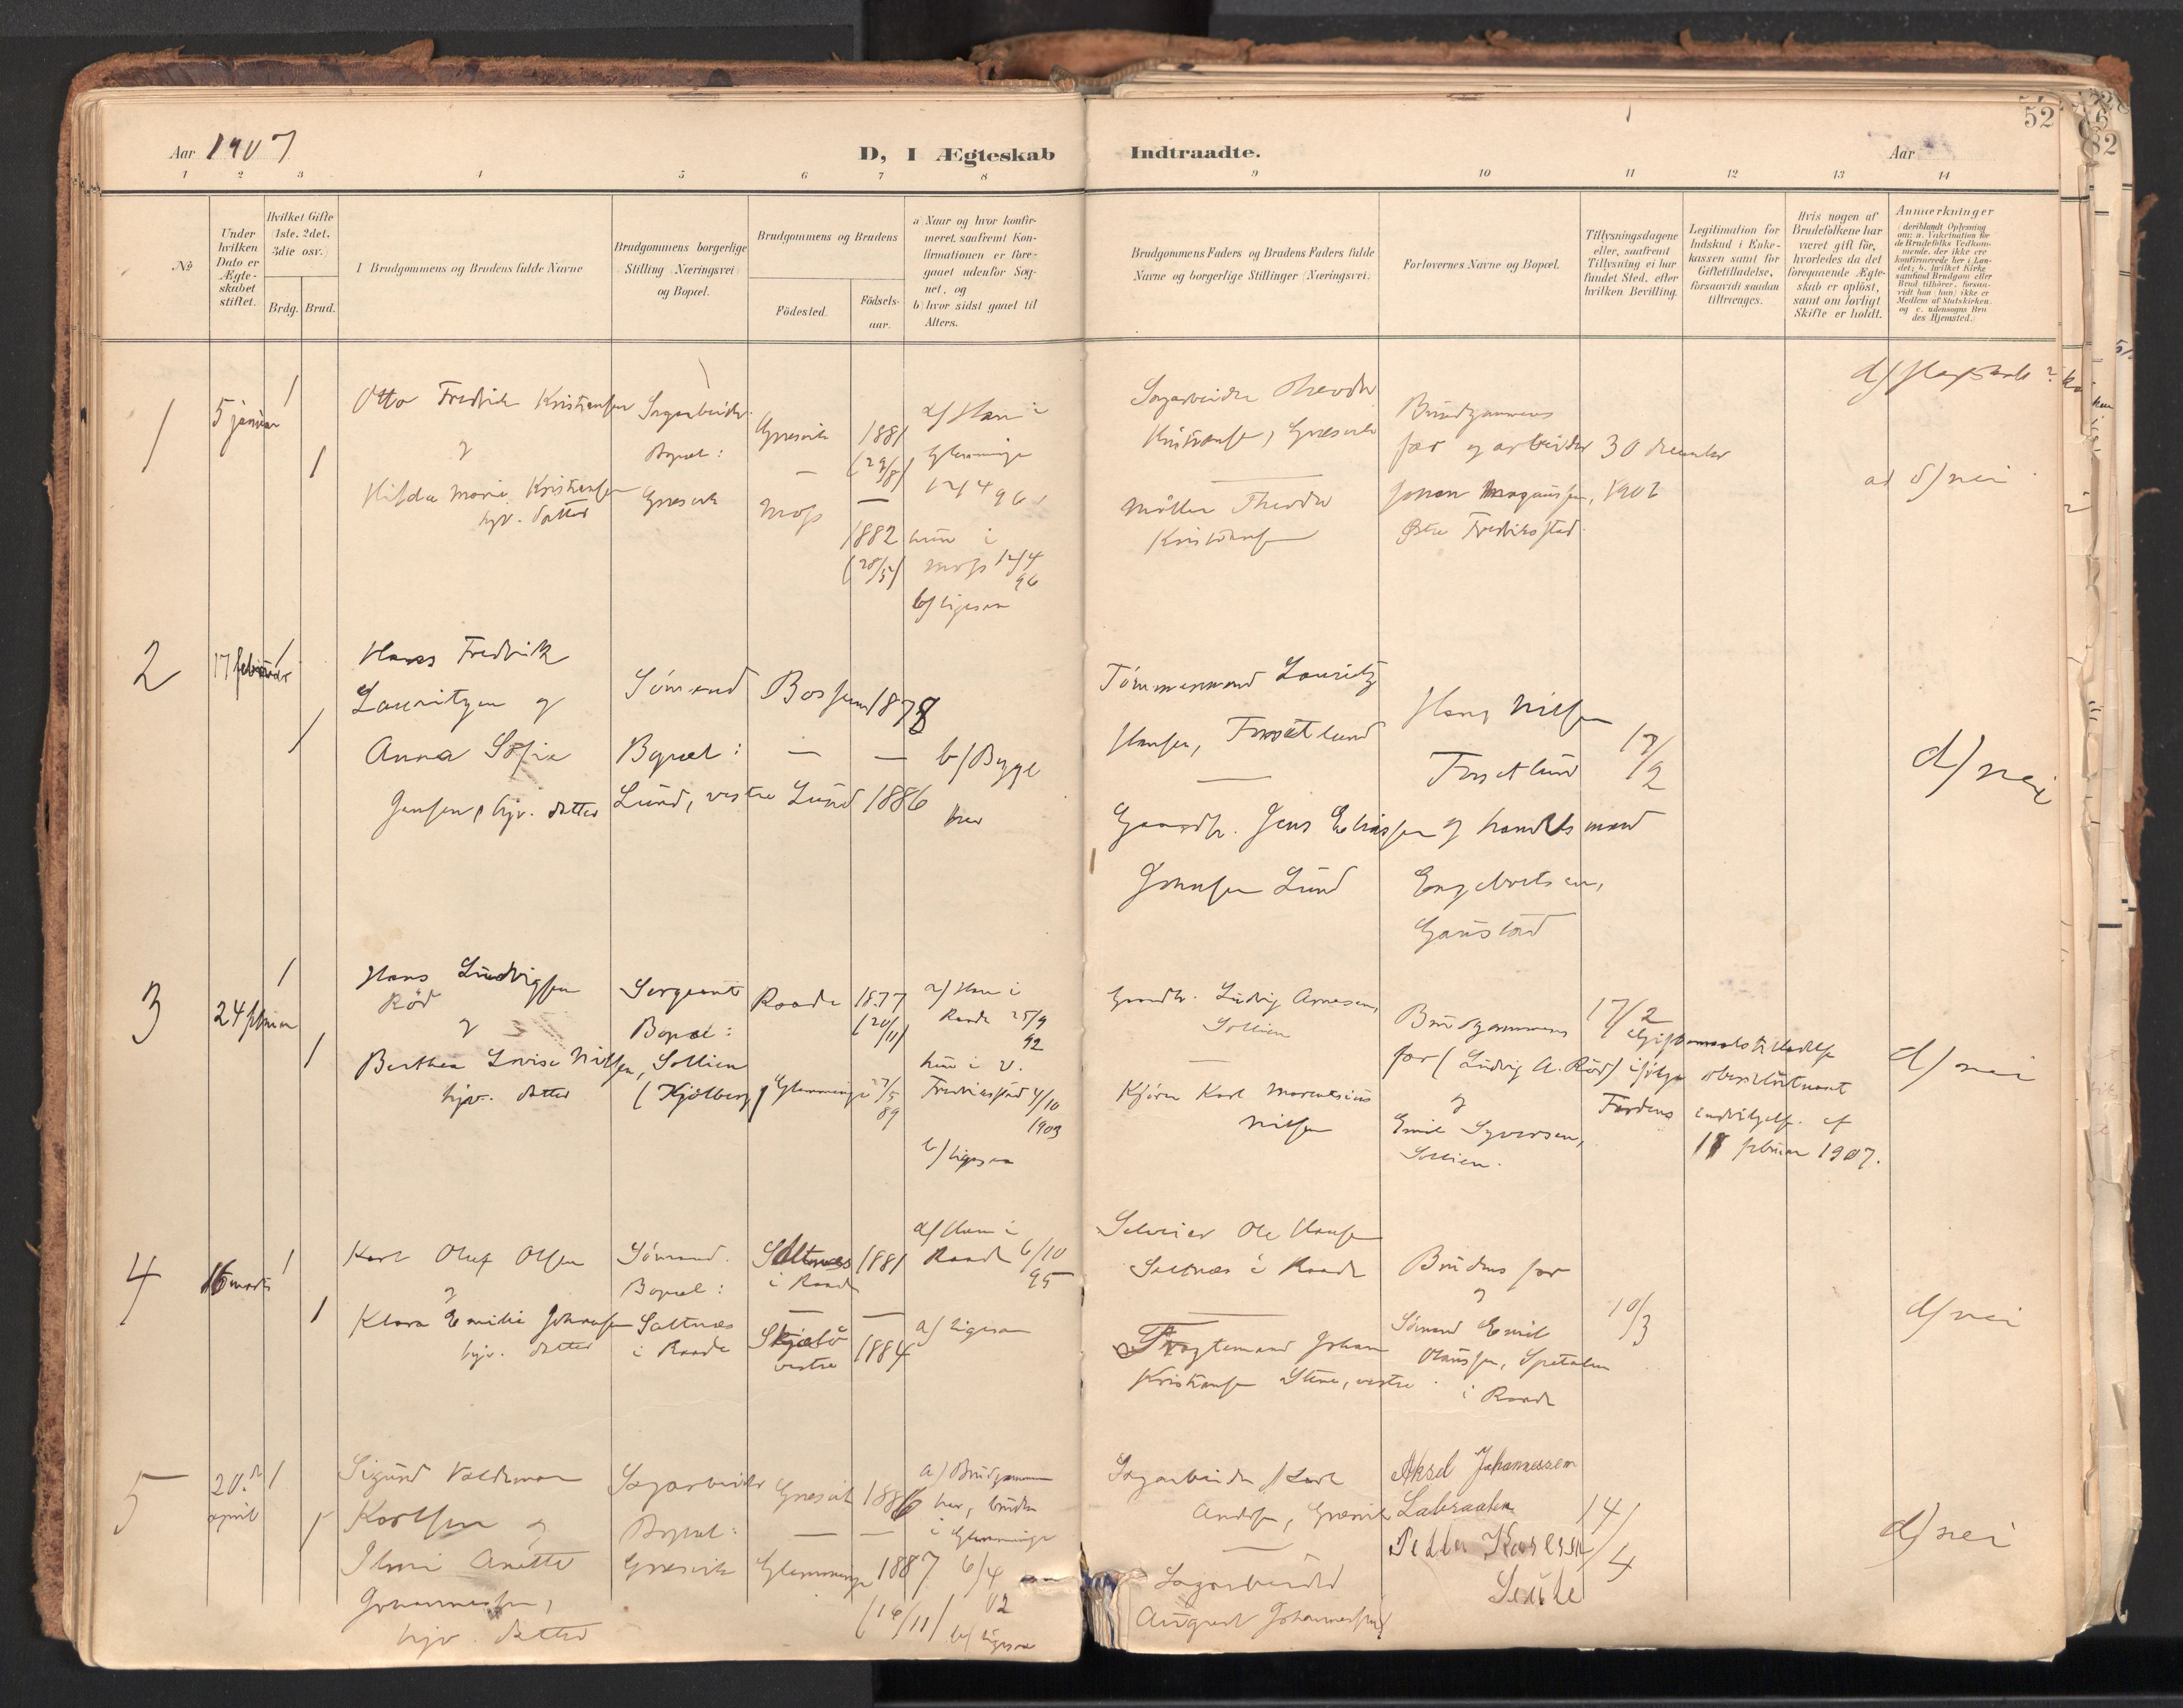 Aar 1907
D, I Ægteskab
Indtraadte.
Aar
52
1 2 3 4 5 6 7 8 9 10 11 12 13 14
No
Under hvilken Dato er Ægteskabet stiftet.
Hvilket Gifte (1ste, 2det, 3die osv.)
Brdg. Brud.
I Brudgommens og Brudens fulde Navne
Brudgommens borgerlige Stilling (Næringsvei) og Bopæl.
Brudgommens og Brudens
Födested.
Födsels-aar.
a) Naar og hvor konfirmeret, saafremt Konfirmationen er foregaaet udenfor Sognet, og
b) hvor sidst gaaet til Alters.
Brudgommens Faders og Brudens Faders fulde Navne og borgerlige Stillinger (Næringsvei)
Forlovernes Navne og Bopæl.
Tillysningsdagene eller, saafremt Tillysning ei har fundet Sted, efter hvilken Bevilling.
Legitimation for Indskud i Enkekassen samt for Giftetilladelse, forsaavidt saadan tiltrænges.
Hvis nogen af Brudefolkene har været gift för, hvorledes da det foregaaende Ægteskab er oplöst, samt om lovligt Skifte er holdt.
Anmærkninger
1
5 januar
1
1
Otto Fredrik Kristiansen
og
Hilda Marie Kristiansen
hjv. datter
Sagarbeider
Bopæl:
Gresvik
Gresvik
—
Moss
1881
(29/8)
—
1882
(28/5)
a/ Han i
Glemminge
12/4 96
hun i
Moss 12/4
96
b/ ligesaa
Sagarbeider Theodor
Kristiansen, Gresvik
—
Möller Theodor
Kristiansen
Brudgommens
far og arbeider
Johan Magnussen,
Østre Fredriksstad
30 december
ad d/ nei
2
17 februar
1
1
Hans Fredrik
Lauritzen og
Anna Sofie
Jensen, hjv. datter
Sömand
Bopæl:
Lund, vestre
—
Lund
1878
—
1886
b/ Begge
her
Tömmermand Lauritz
Hansen,
—
Gaardbr. Jens Eliassen
Lund
Hans Nilsen
og handelsmand
Engebretsen,
Gaustad
17/2
d/ nei
3
24 februar
1
1
Hans Ludvigsen
Röd
og
Berthea Lovise Nilsen,
hjv. datter
Sergeant
Bopæl:
Sollien
(Kjölberg)
Raade
Glemminge
1877
(20/11)
27/5
89
a/ Han i
Raade 25/9
92
hun i V.
Fredriksstad 4/10
1903
b/ ligesaa
Gaardbr. Ludvig Arnesen,
Sollien
—
Karl
Nilsen
Brudgommens
far (Ludvig A. Röd)
og
Emil Syversen,
Sollien.
17/2
Giftermaalstilladelse
ifölge oberstlöitnant
af
18 februar 1907.
d/ nei
4
16 marts
1
1
Karl Olaf Olsen
og
Klara Emilie Johansen
hjv. datter
Sömand.
Bopæl:
Saltnæs
i Raade
Saltnæs
i Raade
—
Skjælö
vestre
1881
—
1884
a/ Han i
Raade 6/10
95
a/ ligesaa
Selveier Ole Hansen
Saltnæs i Raade
—
Fragtemand Johan
Kristiansen Stene, vestre
Brudens far
og
Sömand Emil
Olaussen, Spetalen
i Raade
10/3
d/ nei
5
20de
april
1
1
Sigurd Valdemar
Karlsen og
Anette
Johannessen,
hjv. datter
Sagarbeider
Bopæl:
Gresvik
Gresvik
—
Glemminge
1886
—
1887
(16/11)
a/ Brudgommen
her, bruden
i Glemminge
6/4
02
b/ ligesaa
Sagarbeider Karl
Gresvik
—
Sagarbeider
August Johannessen
Aksel Johannessen
Labraaten
Karlsen
14/4
d/ nei